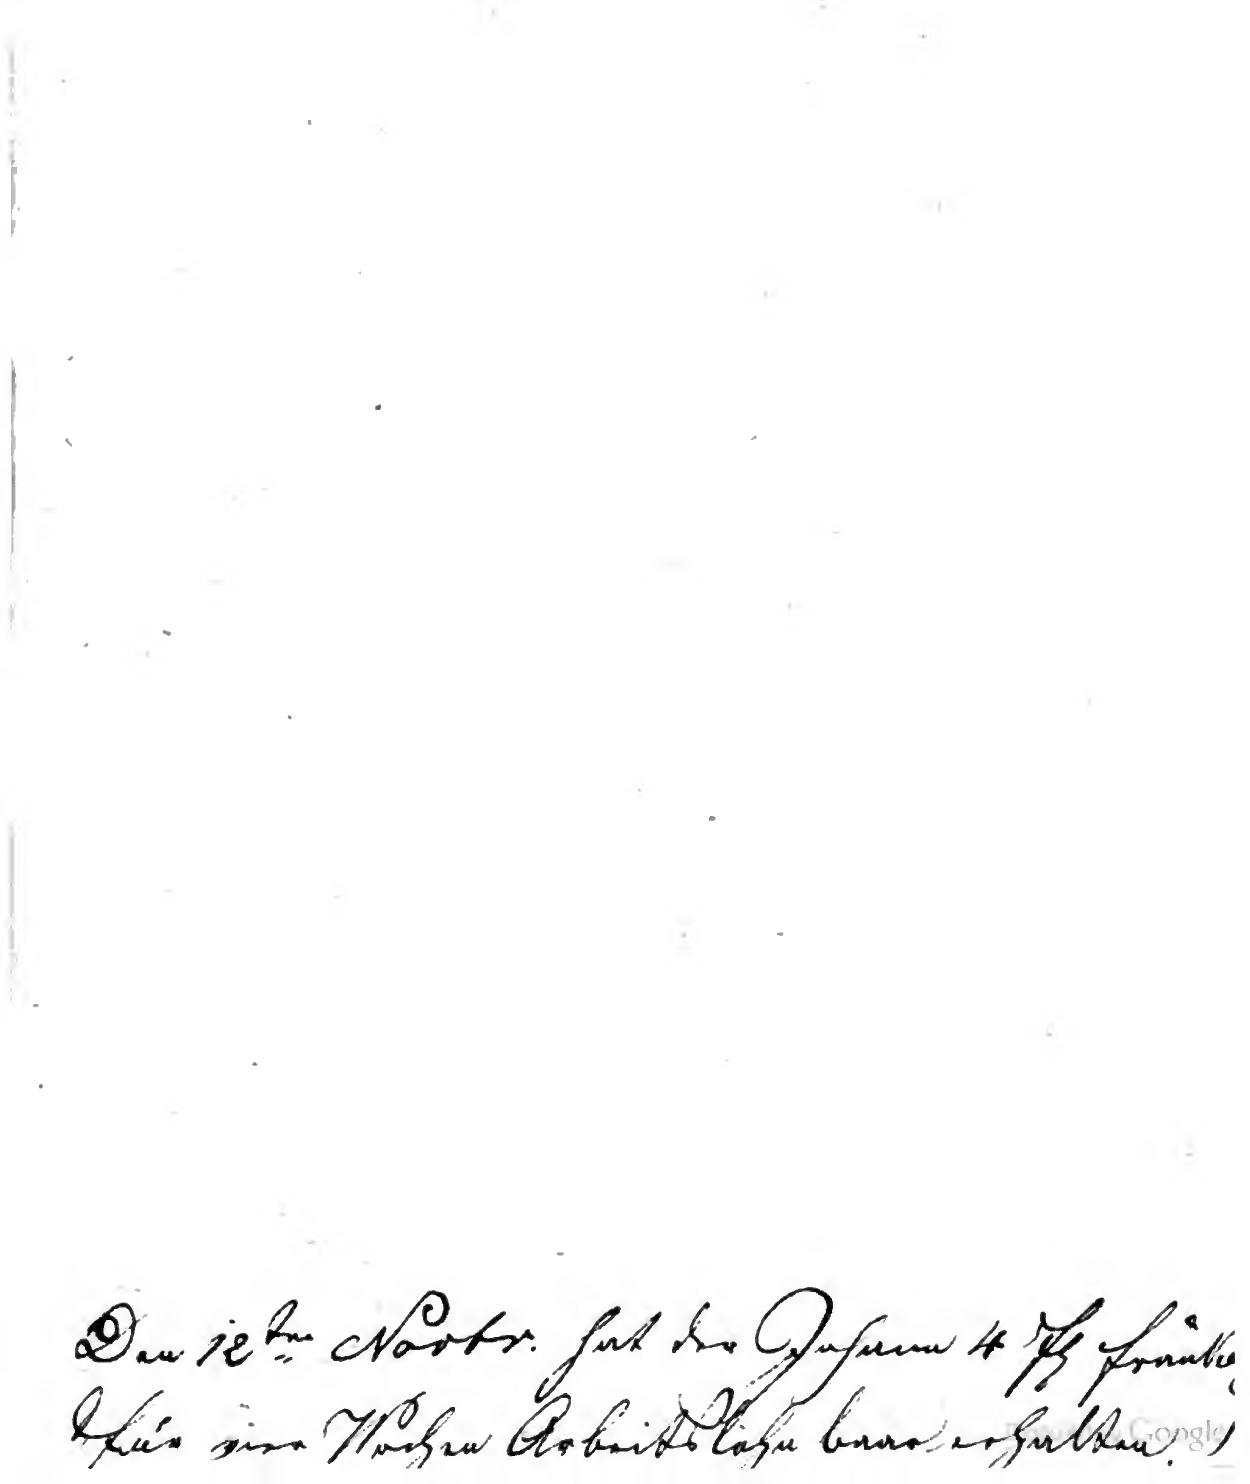 Den 12ten Novbr. hat der Johann 4 fränk
für vier Wochen Arbeitslohn baar erhalten.
Google